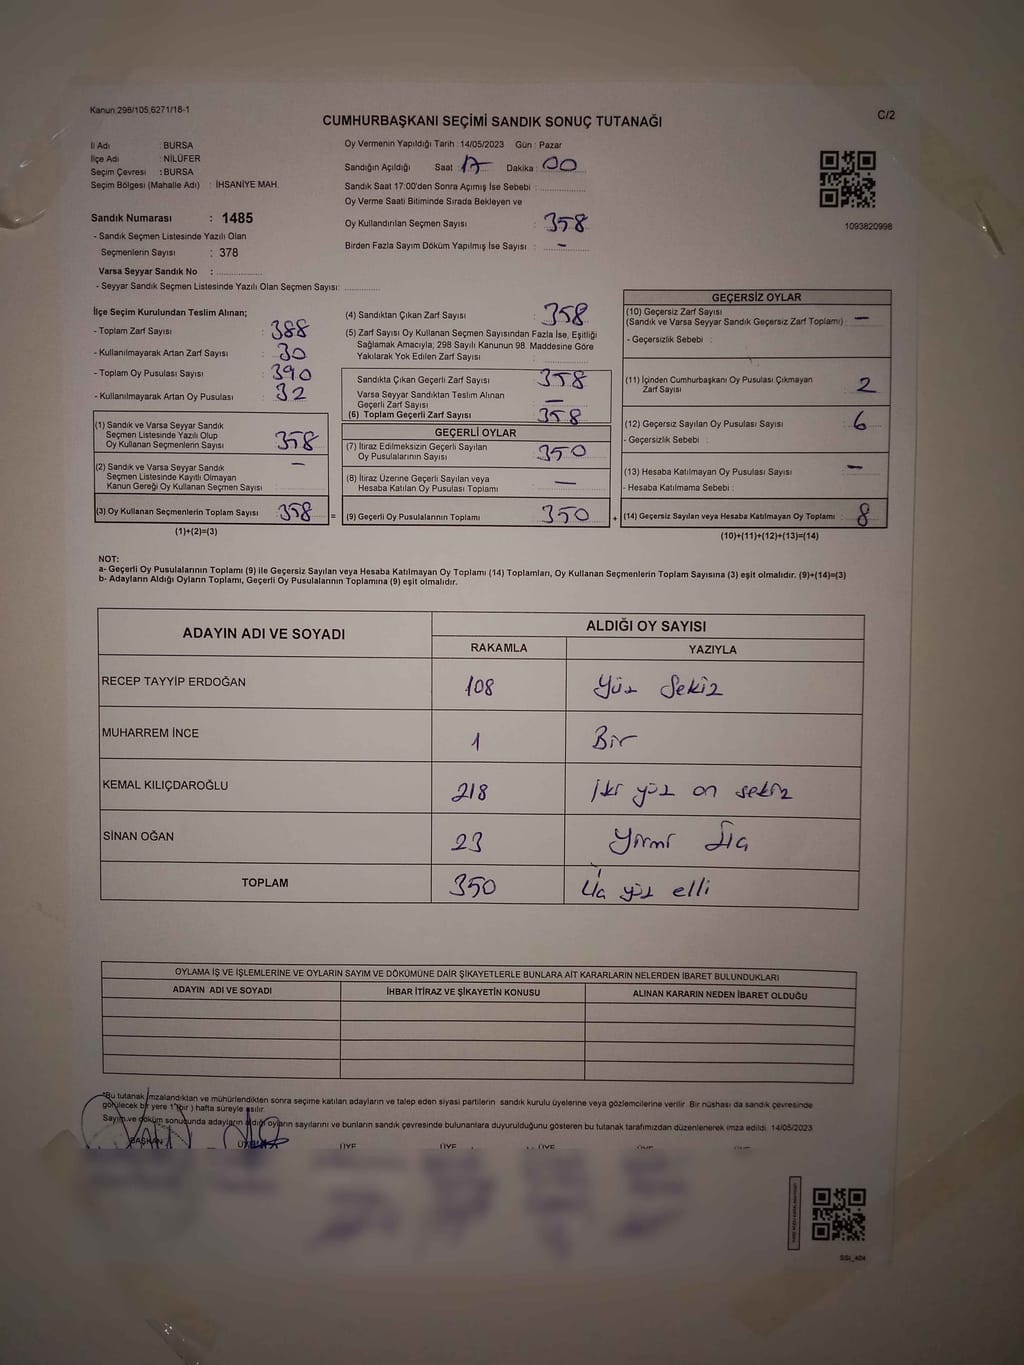 Kanun:298/105,6271/18-1
C/2
CUMHURBAŞKANI SEÇİMİ SANDIK SONUÇ TUTANAĞI
İl Adı : BURSA
İlçe Adı : NİLÜFER
Seçim Çevresi : BURSA
Seçim Bölgesi (Mahalle Adı) : İHSANİYE MAH.
Sandık Numarası : 1485
- Sandık Seçmen Listesinde Yazılı Olan
Seçmenlerin Sayısı : 378
Varsa Seyyar Sandık No : ..............
- Seyyar Sandık Seçmen Listesinde Yazılı Olan Seçmen Sayısı: ............
Oy Vermenin Yapıldığı Tarih : 14/05/2023 Gün : Pazar
Sandığın Açıldığı Saat : 17 Dakika : 00
Sandık Saat 17:00'den Sonra Açımış İse Sebebi : ..............
Oy Verme Saati Bitiminde Sırada Bekleyen ve
Oy Kullandırılan Seçmen Sayısı : 358
Birden Fazla Sayım Döküm Yapılmış İse Sayısı : -
1093820998
İlçe Seçim Kurulundan Teslim Alınan;
- Toplam Zarf Sayısı : 388
- Kullanılmayarak Artan Zarf Sayısı : 30
- Toplam Oy Pusulası Sayısı : 390
- Kullanılmayarak Artan Oy Pusulası : 32
(1) Sandık ve Varsa Seyyar Sandık
Seçmen Listesinde Yazılı Olup
Oy Kullanan Seçmenlerin Sayısı : 358
(2) Sandık ve Varsa Seyyar Sandık
Seçmen Listesinde Kayıtlı Olmayan
Kanun Gereği Oy Kullanan Seçmen Sayısı : -
(3) Oy Kullanan Seçmenlerin Toplam Sayısı : 358
(1)+(2)=(3)
(4) Sandıktan Çıkan Zarf Sayısı : 358
(5) Zarf Sayısı Oy Kullanan Seçmen Sayısından Fazla İse, Eşitliği
Sağlamak Amacıyla; 298 Sayılı Kanunun 98. Maddesine Göre
Yakılarak Yok Edilen Zarf Sayısı :
Sandıkta Çıkan Geçerli Zarf Sayısı : 358
Varsa Seyyar Sandıktan Teslim Alınan
Geçerli Zarf Sayısı : -
(6) Toplam Geçerli Zarf Sayısı : 358
GEÇERLİ OYLAR
(7) İtiraz Edilmeksizin Geçerli Sayılan
Oy Pusulalarının Sayısı : 350
(8) İtiraz Üzerine Geçerli Sayılan veya
Hesaba Katılan Oy Pusulaları Toplamı : -
= (9) Geçerli Oy Pusulalarının Toplamı : 350
GEÇERSİZ OYLAR
(10) Geçersiz Zarf Sayısı
(Sandık ve Varsa Seyyar Sandık Geçersiz Zarf Toplamı) : -
- Geçersizlik Sebebi :
(11) İçinden Cumhurbaşkanı Oy Pusulası Çıkmayan
Zarf Sayısı : 2
(12) Geçersiz Sayılan Oy Pusulası Sayısı : 6
- Geçersizlik Sebebi :
(13) Hesaba Katılmayan Oy Pusulası Sayısı : -
- Hesaba Katılmama Sebebi :
+ (14) Geçersiz Sayılan veya Hesaba Katılmayan Oy Toplamı : 8
(10)+(11)+(12)+(13)=(14)
NOT:
a- Geçerli Oy Pusulalarının Toplamı (9) ile Geçersiz Sayılan veya Hesaba Katılmayan Oy Toplamı (14) Toplamları, Oy Kullanan Seçmenlerin Toplam Sayısına (3) eşit olmalıdır. (9)+(14)=(3)
b- Adayların Aldığı Oyların Toplamı, Geçerli Oy Pusulalarının Toplamına (9) eşit olmalıdır.
ADAYIN ADI VE SOYADI ALDIĞI OY SAYISI
RAKAMLA YAZIYLA
RECEP TAYYİP ERDOĞAN 108 Yüz Sekiz
MUHARREM İNCE 1 Bir
KEMAL KILIÇDAROĞLU 218 İki yüz on sekiz
SİNAN OĞAN 23 Yirmi Üç
TOPLAM 350 Üç yüz elli
OYLAMA İŞ VE İŞLEMLERİNE VE OYLARIN SAYIM VE DÖKÜMÜNE DAİR ŞİKAYETLERLE BUNLARA AİT KARARLARIN NELERDEN İBARET BULUNDUKLARI
ADAYIN ADI VE SOYADI İHBAR İTİRAZ VE ŞİKAYETİN KONUSU ALINAN KARARIN NEDEN İBARET OLDUĞU
"Bu tutanak imzalandıktan ve mühürlendikten sonra seçime katılan adayların ve talep eden siyasi partilerin sandık kurulu üyelerine veya gözlemcilerine verilir. Bir nüshası da sandık çevresinde
görülecek bir yere 1 (bir) hafta süreyle asılır.
Sayım ve döküm sonucunda adayların aldığı oyların sayılarını ve bunların sandık çevresinde bulunanlara duyurulduğunu gösteren bu tutanak tarafımızdan düzenlenerek imza edildi. 14/05/2023
BAŞKAN ÜYE ÜYE ÜYE ÜYE ÜYE